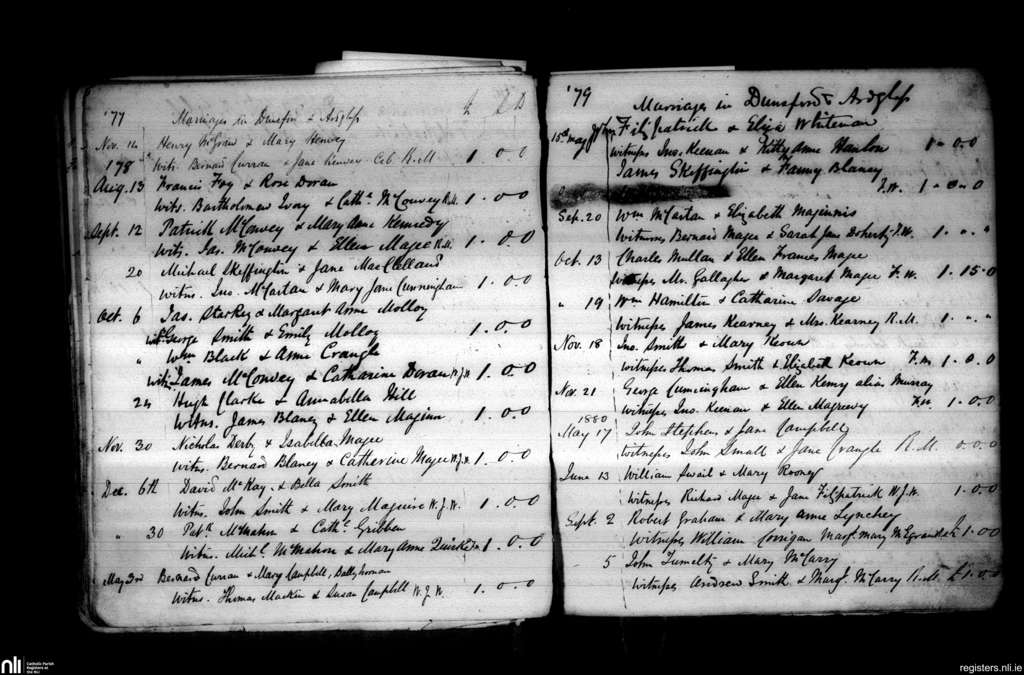 '77 Marriages in Dunsford & Ardglass £ S D
Nov. 14 Henry McGraw & Mary Henvey
Wits. Bernard Curran & Jane Cob R.M. 1 0 0
178
Aug. 13 Francis Fay & Rose Doran
Wits. Bartholomew & Cathe McConvey R.M. 1.0.0
Sept. 12 Patrick McConvey & Mary Anne Kennedy
Wits. Jas. McConvey & Ellen Magee R.M. 1.0.0
20 Michael Skeffington & Jane MacClelland
Witns. Jno. McCartan & Mary Jane Cunningham 1.0.0
Oct. 6 Jas. Starkey & Margaret Anne Molloy
wits. George Smith & Emily Molloy 1.0.0
" Wm Black & Anne Crangle
wits. James McConvey & Catharine Doran W.J.W. 1.0.0
24 Hugh Clarke & Annabella Hill
Witns. James Blaney & Ellen Maginn 1.0.0
Nov. 30 Nicholas Derby & Isabella Magee
Witns. Bernard Blaney & Catherine Magee W.J.W. 1.0.0
Dec. 6th David McKay & Bella Smith
Witns. John Smith & Mary Maguire W.J.W. 1.0.0
" 30 Patk McMahon & Cathe Gribben
Witns. Michl. McMahon & Mary Anne 1.0.0
May 3rd Bernard Curran & Mary Campbell, Ballyhornan
Witns. Thomas Macken & Susan Campbell W.J.W. 1.0.0
'79 Marriages in Dunsford & Ardglass
15th May Fitzpatrick & Eliza Whiteman
Witnesses Jno. Keenan & Kitty Anne Hanlon 1.0.0
James Skeffington & Fanny Blaney
F.W. 1.0.0
Sep. 20 Wm McCartan & Elizabeth Maginnis
Witnesses Bernard Magee & Sarah Jane Doherty F.W. 1. " "
Oct. 13 Charles Mullan & Ellen Frances Magee
Witnesses Mr. Gallagher & Margaret Magee F.W. 1.15.0
" 19 Wm Hamilton & Catharine Savage
Witnesses James Kearney & Mrs. Kearney R.M. 1. " "
Nov. 18 Jno. Smith & Mary Keown
Witnesses Thomas Smith & Elizabeth Keown F.W. 1.0.0
Nov. 21 George Cunningham & Ellen Kenny alias Murray
Witnesses Jno. Keenan & Ellen Magreevy F.W. 1.0.0
1880
May 17 John Stephens & Jane Campbell
Witnesses John Small & Jane Crangle R.M. 0.0.0
June 13 William Swail & Mary Rooney
Witnesses Richard Magee & Jane Fitzpatrick W.J.W. 1.0.0
Sept. 2 Robert Graham & Mary Anne Lynchey
Witnesses William Corrigan Margt. Mary £1.0.0
5 John Tumelty & Mary McCarry
Witnesses Andrew Smith & Margt. McCarry R.M. £1.0.0
nli Catholic Parish
Registers at
the NLI
registers.nli.ie